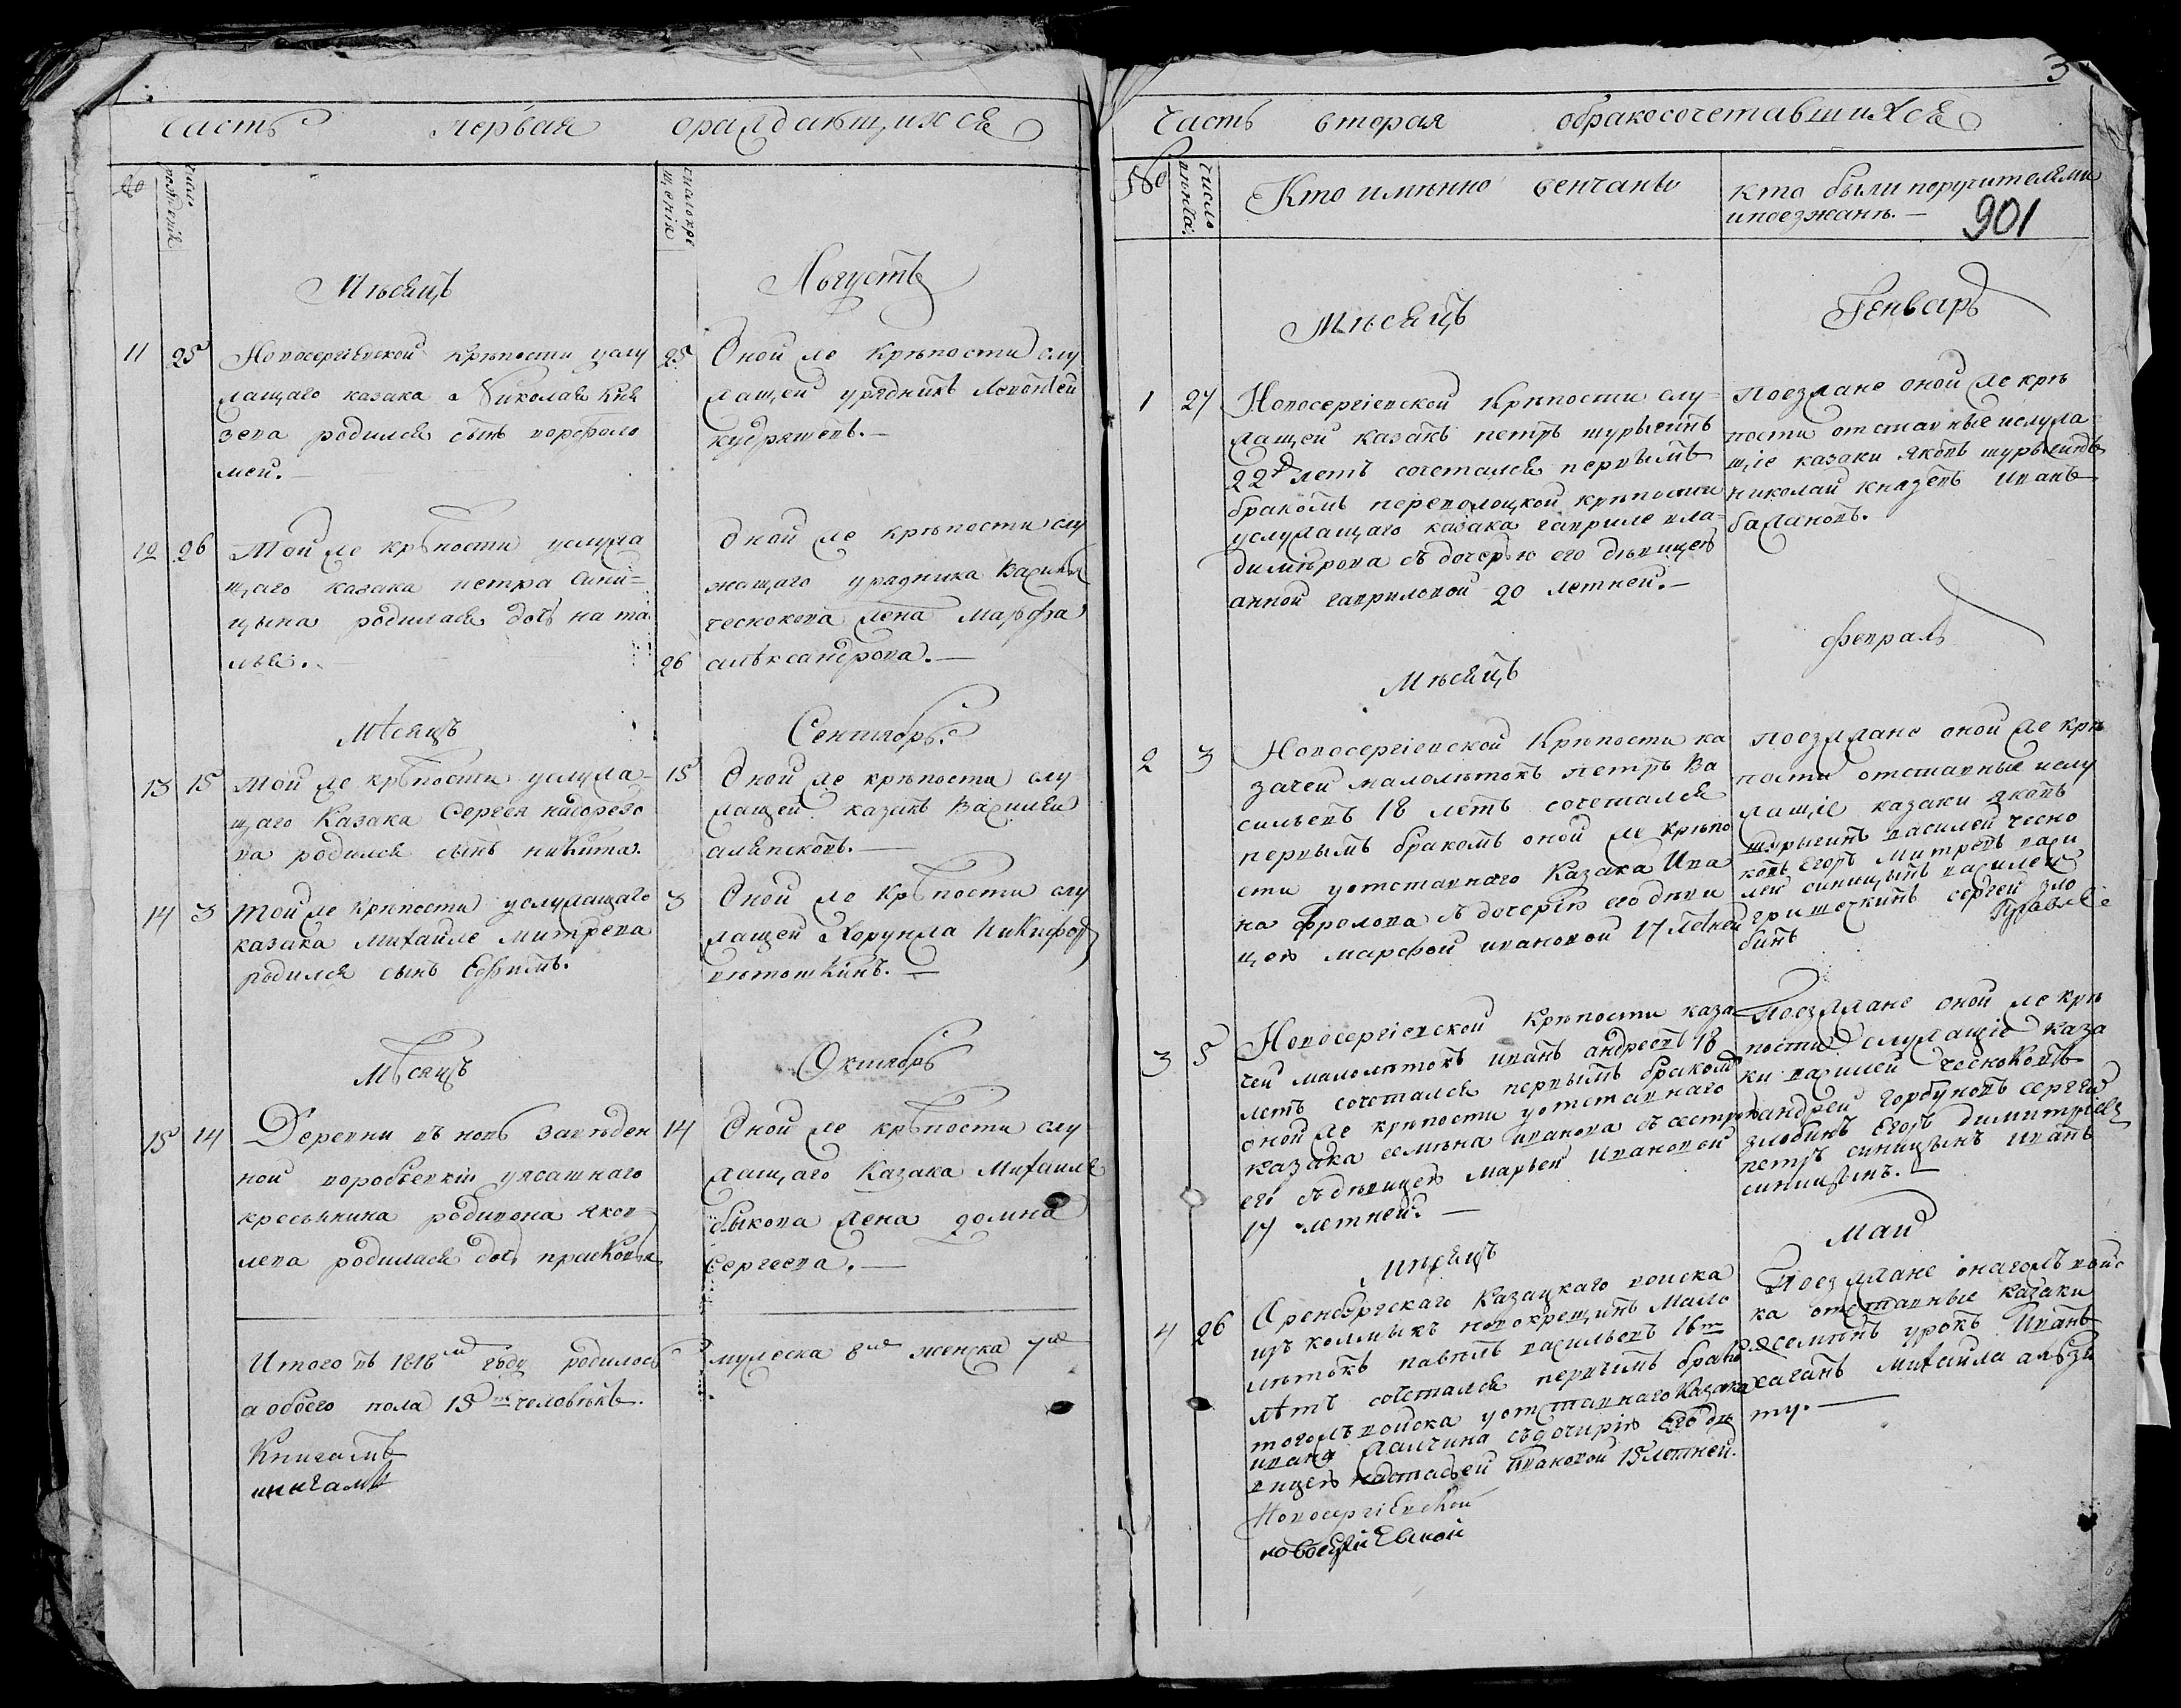 часть первая ораждающихся
№
число рождения
число креще
щения
Мѣсяцъ
Августъ
11 25 Новосергіевской крѣпости услу
жащаго казака Николая Кня
зева родился сынъ ворфоло
мей.
25 Оной же крѣпости слу
жащей урядникъ Леонтей
кудряшевъ.
12 26 Той же крѣпости услужа
щаго казака петра Сини=
цына родилася дочь ната
лья.
Оной же крѣпости слу
жащаго урядника Василья
чеснокова жена Марфа
26 александрова.
Мѣсяцъ
Сентябрь.
13 15 Той же крѣпости услужа=
щаго Казака Сергея
ва родился сынъ никита.
15 Оной же крѣпости слу
жащей казакъ Василей
14 3 Той же Крѣпости услужащаго
казака Михайле митрева
родился сынъ Ефимъ.
3 Оной же крѣпости слу
жащей Хорунжа Никифоръ
Мѣсяцъ
Октябрь
15 14 Деревни въ новь заведен
ной воробьевки уясашнаго
кресьянина родивона яков
лева родилася дочь прасковья
14 Оной же крѣпости слу
жащаго Казака Михайле
быкова жена домна
Сергеева.
Итого въ 1818м году родилось
а обоего пола 15ть человѣкъ.
мужеска 8м женска 7м
Книгамъ
книгамъ
3
часть вторая обракосочетавшихся
№
число
Кто имянно венчаны
кто были поручителями
ипоезжанъ.
901
Мѣсяцъ
Генварь
1 27 Новосергіевской Крѣпости слу=
жащей казакъ петръ шурыгинъ
22х летъ сочетался первымъ
бракомъ переволоцкой крѣпости
услужащаго казака гавриле вла=
димѣрова съ дочерью его дѣвицею
анной гавриловой 20 летней.
поезжане оной же крѣ
пости отставные ислужа=
щіе казаки яковъ шурыгинъ
николай князевъ иванъ
балановъ.
Мѣсяцъ
февраль
2 3 Новосергіевской Крѣпости ка
зачей малолѣтокъ петръ Ва
сильевъ 18 летъ сочетался
первымъ бракомъ оной же крѣпо
сти уотставнаго Казака Ива
на фролова съ дочерію его дѣви
цею марфой ивановой 17 летней
поезжане оной же крѣ
пости отставные ислу
жащіе казаки яковъ
шурыгинъ василей чесно
ковъ Егоръ Митревъ васи
лей синицынъ василей
гришечкинъ сергей зло
бинъ
3 5 Новосергіевской Крѣпости каза
чей малолѣтокъ иванъ андреевъ 18
летъ сочетался первымъ бракомъ
оной же крѣпости уотставнаго
казака семѣна иванова съ сестрою
его съдѣвицею марьей Ивановой
17 летней.
поезжане оной же крѣ
пости служащіе каза
ки василей чесноковъ
андрей горбуновъ сергей
злобинъ Егоръ димитреевъ
петръ синицынъ иванъ
синицынъ.
Мѣсяцъ
Май
4 26 Оренбургскаго Казацкаго войска
изъ колмыкъ новокрещинъ Мало
лѣтокъ павелъ васильевъ 16ти
лѣтъ сочетался первымъ бракомъ
тогожъ войска уотставнаго Казака
ивана съдочерію Его дѣ
вицею настасьей Ивановой 15 летней.
поезжане онагожъ войс
ка отставные казаки
семѣнъ урокъ Иванъ
Михайла
ту.
Новосергіевской
новосергіевской